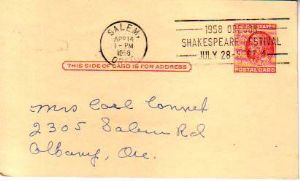 SALEM,
APR 14
1-PM
1958
1958 OREGON
SHAKESPEARE FESTIVAL
JULY 28-
POSTAL CARD
THIS SIDE OF CARD IS FOR ADDRESS
Mrs Carl Connet
2305 Salem Rd
Albany, Ore.